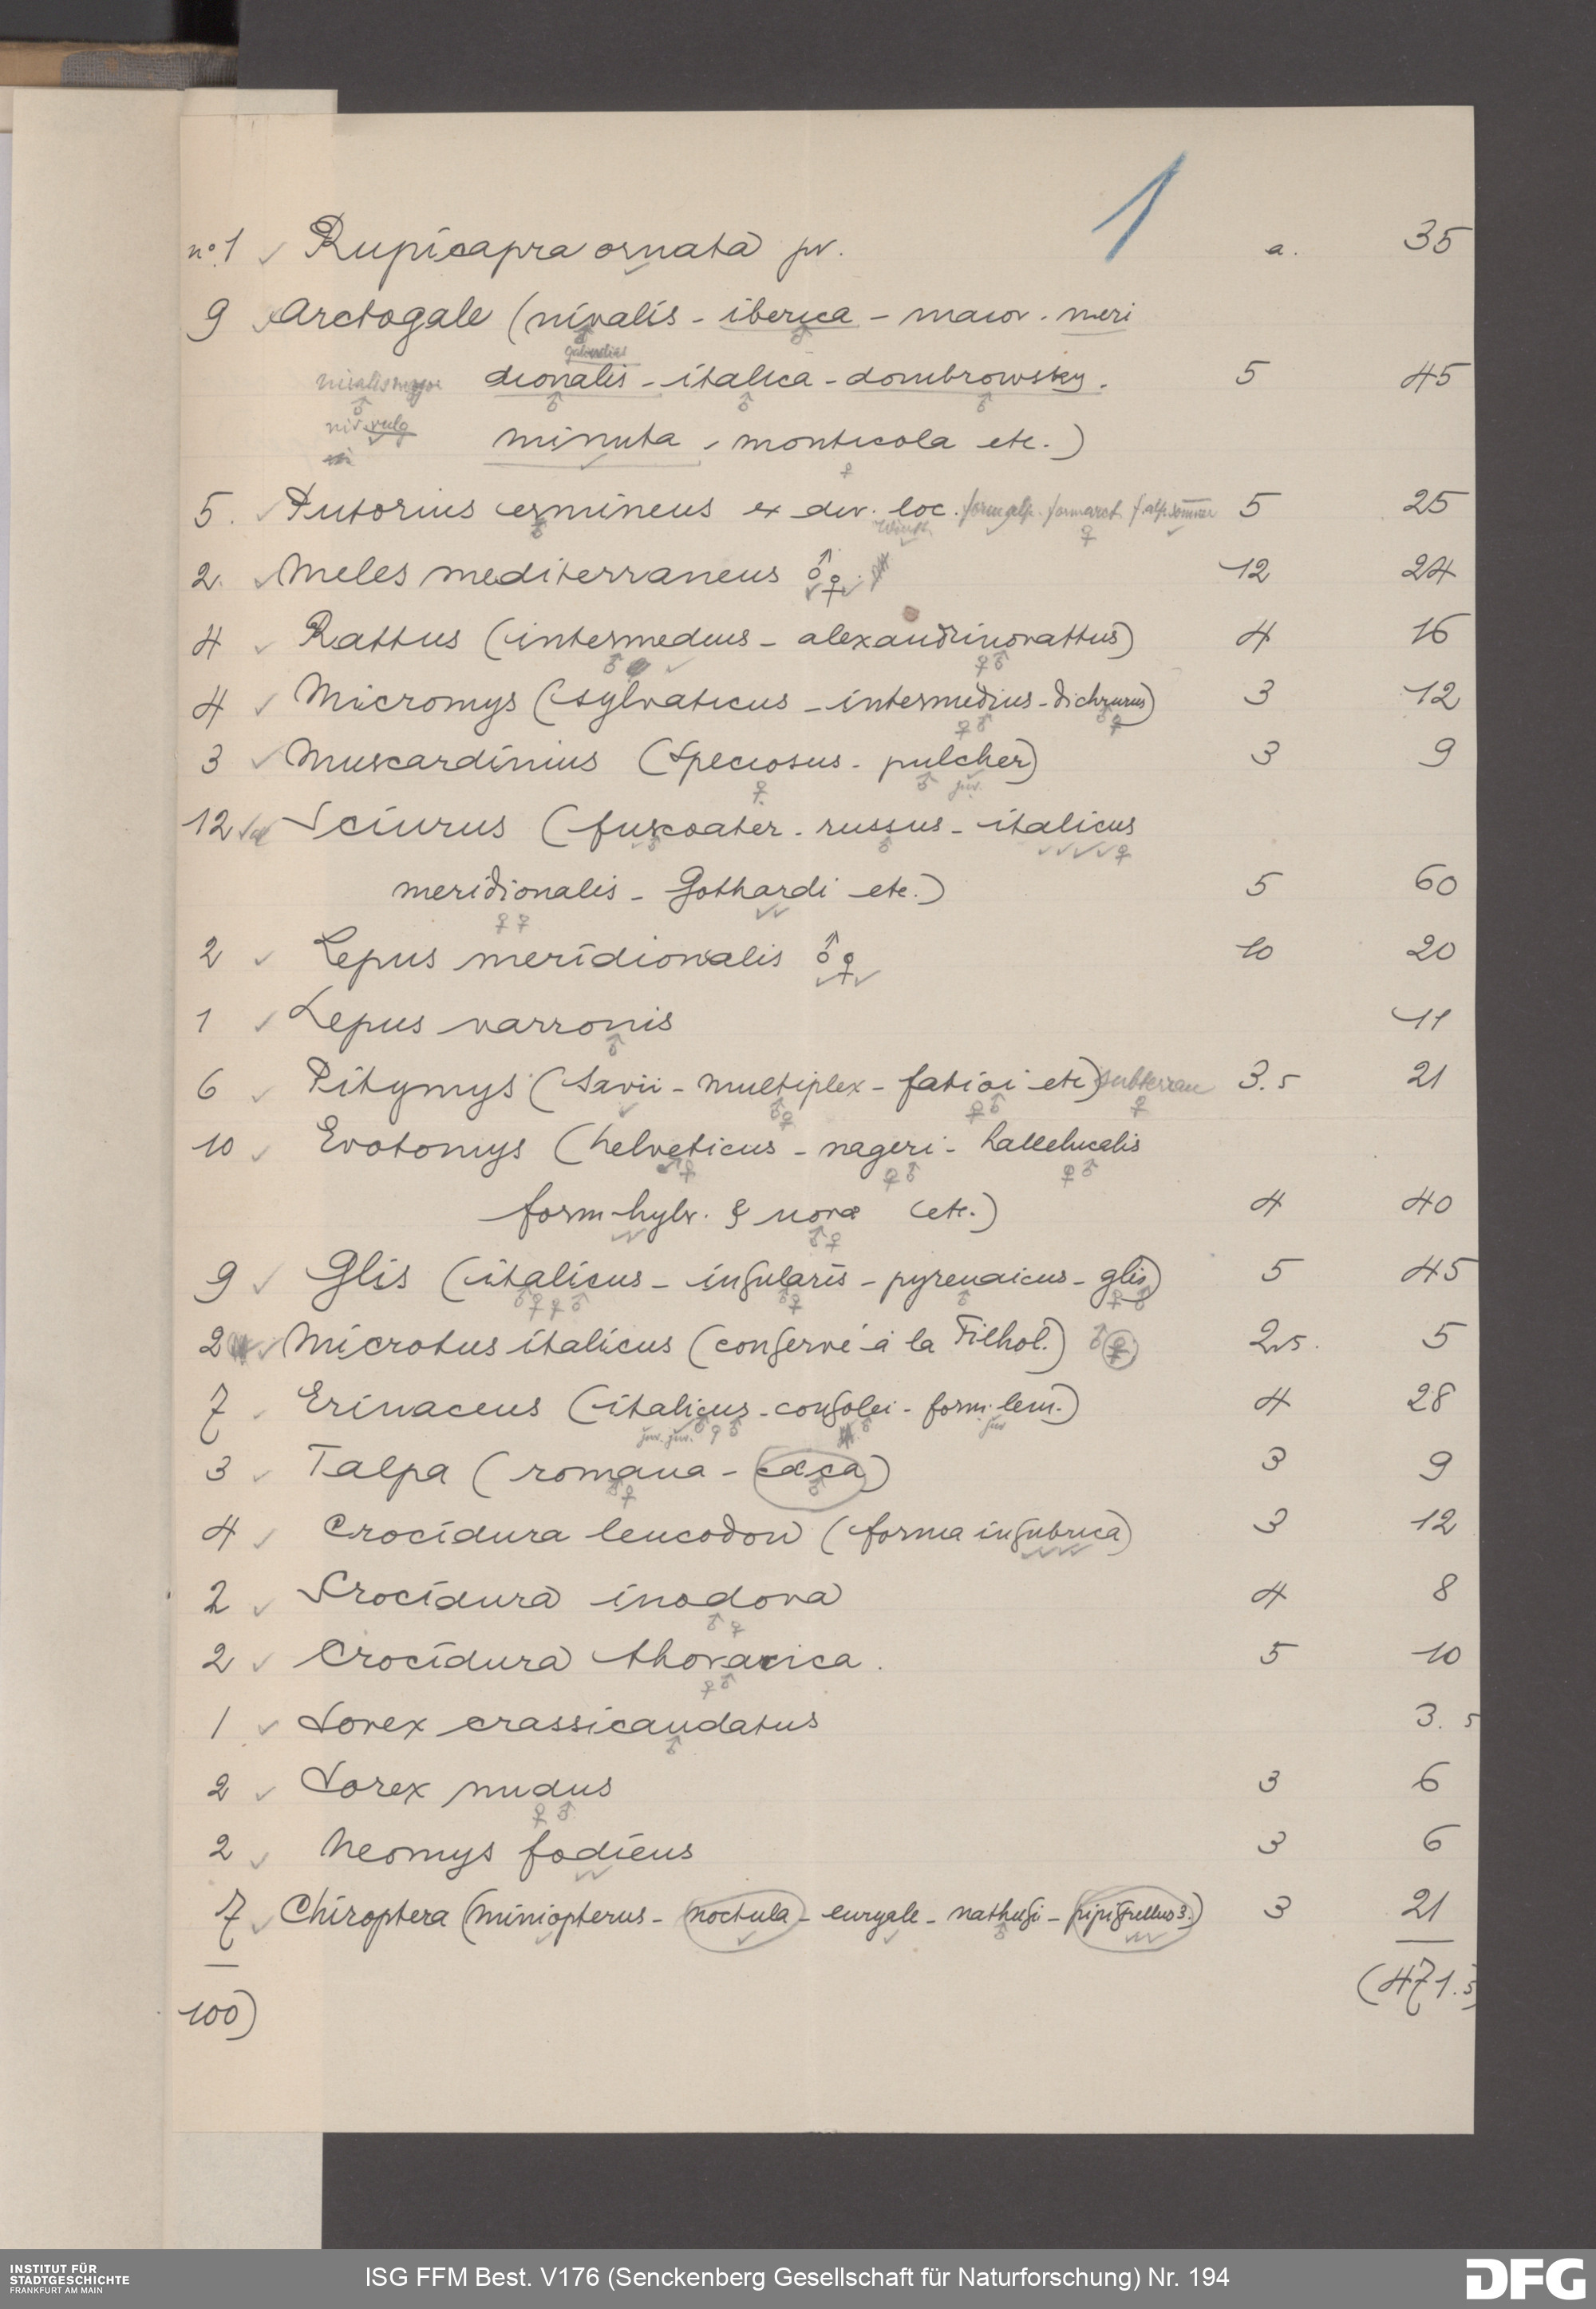 1
n° 1 ✓ Rupicapra ornata juv. a. 35
9 ✓ Arctogale (nivalis - iberica - maior - meri
dionalis - italica - dombrowsky. 5 45
nivalis major
niv. vulg
minuta, monticola etc.)
5. ✓ Putorius ermineus ex div. loc. form alp. form arct. f. alp. sommer 5 25
Winth.
2. ✓ Meles mediterraneus ♂ ♀ 12 24
4 ✓ Rattus (intermedius - alexandrinorattus) 4 16
♂ ♀ ♂
4 ✓ Micromys (sylvaticus - intermedius - dichrurus) 3 12
♀ ♂ ♂ ♀
3 ✓ Muscardinius (speciosus - pulcher) 3 9
♀ ♂ juv.
12 ✓ Sciurus (fuscoater - russus - italicus
♂ ♂ ✓ ✓ ✓ ✓ ♀
meridionalis - Gothardi etc.) 5 60
♀ ♀ ✓ ✓
2 ✓ Lepus meridionalis ♂ ♀ 10 20
1 ✓ Lepus varronis 11
♂
6 ✓ Pitymys (Savii - multiplex - fatioi etc) subterran 3.5 21
✓ ♂ ♀ ♀ ♂ ♀
10 ✓ Evotomys (helveticus - nageri - hallelucalis
♂ ♀ ♀ ♂ ♀ ♂
form hybr. & nova (etc.) 4 40
✓ ✓ ♂ ♀
9 ✓ Glis (italicus - insularis - pyrenaicus - glis) 5 45
♂ ♀ ♀ ♂ ♂ ♀ ♂ ♀ ♂
2 ✓ Microtus italicus (conservé à la Filhol.) ♂ ♀ 2.5. 5
7 ✓ Erinaceus (italicus - consolei - form. lem.) 4 28
juv. juv. ♂ ♀ ♂ ♂ juv
3 ✓ Talpa (romana - cæca) 3 9
♂ ♀ ♂
4 ✓ Crocidura leucodon (forma insubrica) 3 12
2 ✓ Crocidura inodora 4 8
♂ ♀
2 ✓ Crocidura thoracica. 5 10
♀ ♂
1 ✓ Sorex crassicaudatus 3.5
♂
2 ✓ Sorex nudus 3 6
♀ ♂
2 ✓ Neomys fodiens 3 6
✓ ✓
7 ✓ Chiroptera (miniopterus - noctula - euryale - nathusi - pipistrellus 3.) 3 21
✓ ✓ ✓ ♂ ✓ ✓ ✓
100) (471.5)
INSTITUT FÜR
STADTGESCHICHTE
FRANKFURT AM MAIN
ISG FFM Best. V176 (Senckenberg Gesellschaft für Naturforschung) Nr. 194
DFG